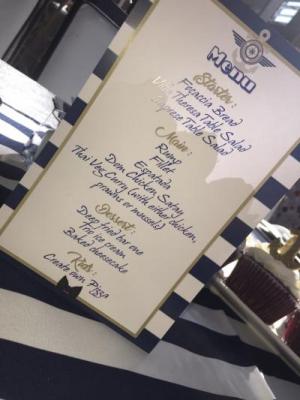 Menu
Starter:
Focaccia Bread
Theresa Table Salad
Table Salad
Main:
Rump
Fillet
Espatada
Dom Chicken Satay
Thai Veg Curry (with either chicken,
prawns or mussels)
Dessert:
Deep fried bar one
Trio ice cream
Baked cheesecake
Kids:
Create own Pizza